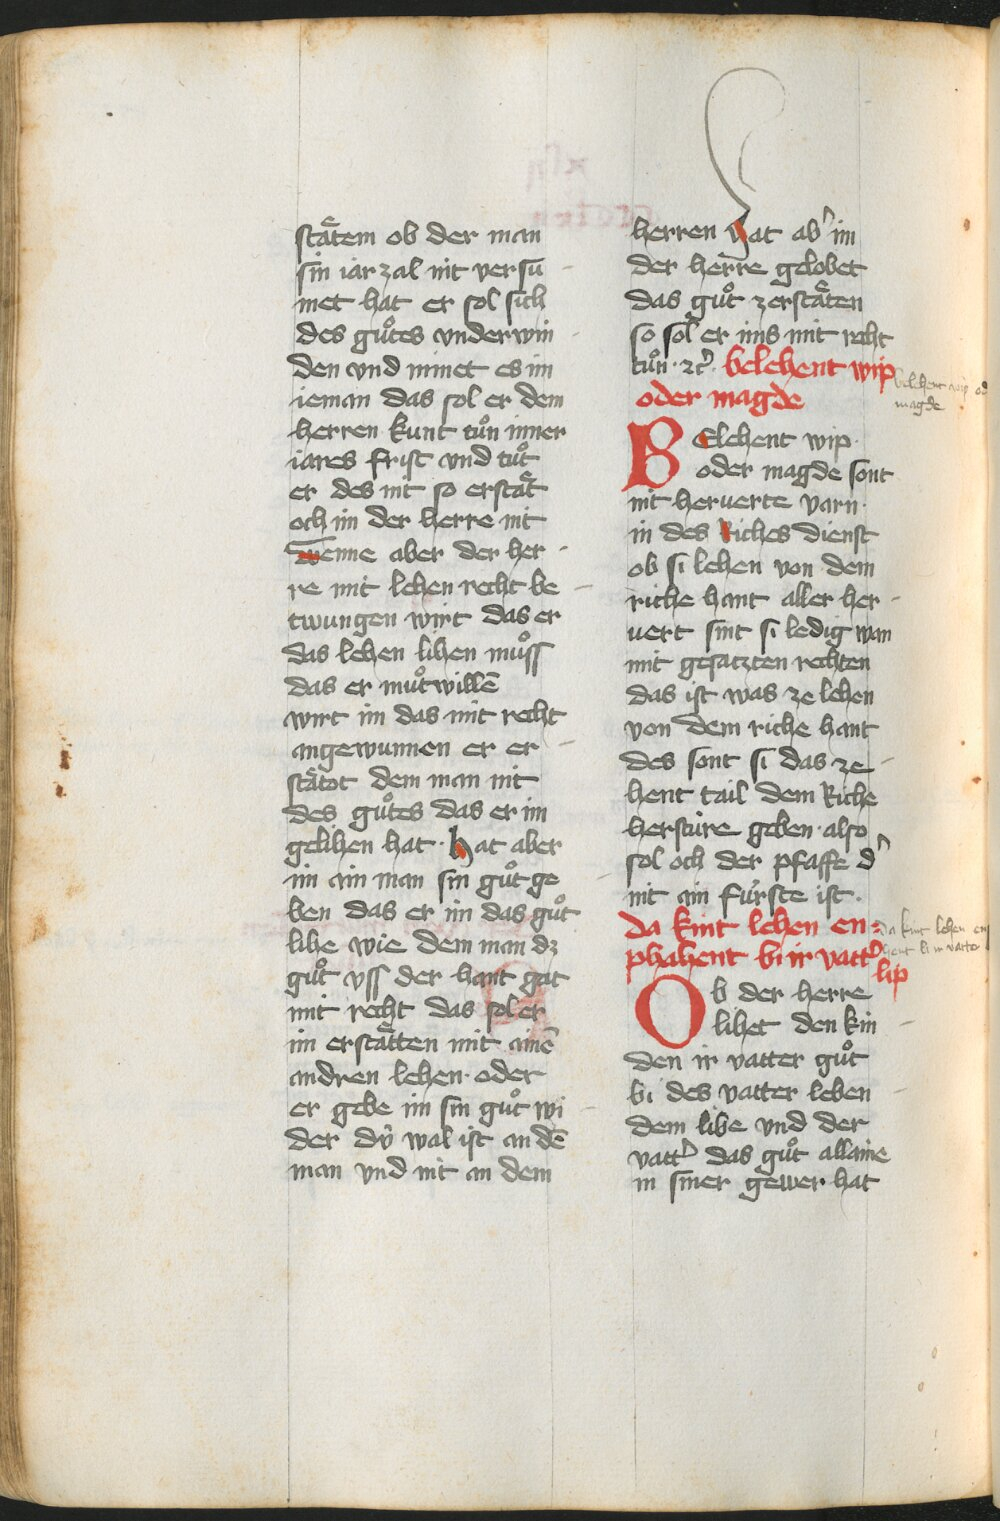 stäͤtem ob der man
sin iarzal nit versu
met hat er sol sich
des guͦtes vnderwin
den vnd nimet es im
ieman das sol er dem
herren kunt tuͦn inner
iares frist vnd tuͦt
er des nit so erstaͤt
och im der herre nit
wenne aber der her
re mit lehen recht be
twungen wirt das er
das lehen lihen muͦss
das er muͦtwillē
wirt im das mit recht
angewunnen er er
staͤtot dem man nit
des guͦtes das er im
gelihen hat · hat aber
im ain man sin guͦt ge
ben das er im das guͦt
lihe wie dem man dz
guͦt vss der hant gat
mit recht das sol er
im erstaͤtten mit ainē
andren lehen · oder
er gebe im sin guͦt wi
der dv̓ wal ist an dē
man vnd nit an dem
herren hat ab' im
der herre gelobet
das guͦt zerstaͤten
so sol er ims mit recht
tuͦn · ⁊c̓ · belehent wip
oder magde
BElehent wip ·
oder magde sont
nit heruerte varn ·
in des Riches dienst
ob si lehen von dem
riche hant aller her
uert sint si ledig wan
mit gesatzten rechten
das ist was ze lehen
von dem riche hant
des sont si das ze
hent tail dem Riche
hersture geben · also
sol och der pfaffe d'
nit ain fúrste ist ·
da kint lehen en
phahent bi ir vatt'
lip
Ob der herre
lihet den kin
den ir vatter guͦt
bi des vatter leben
dem libe vnd der
vatt' das guͦt allaine
in siner gewer hat
belehent wip od
magde
da kint lehen en
hent bi ir vatter